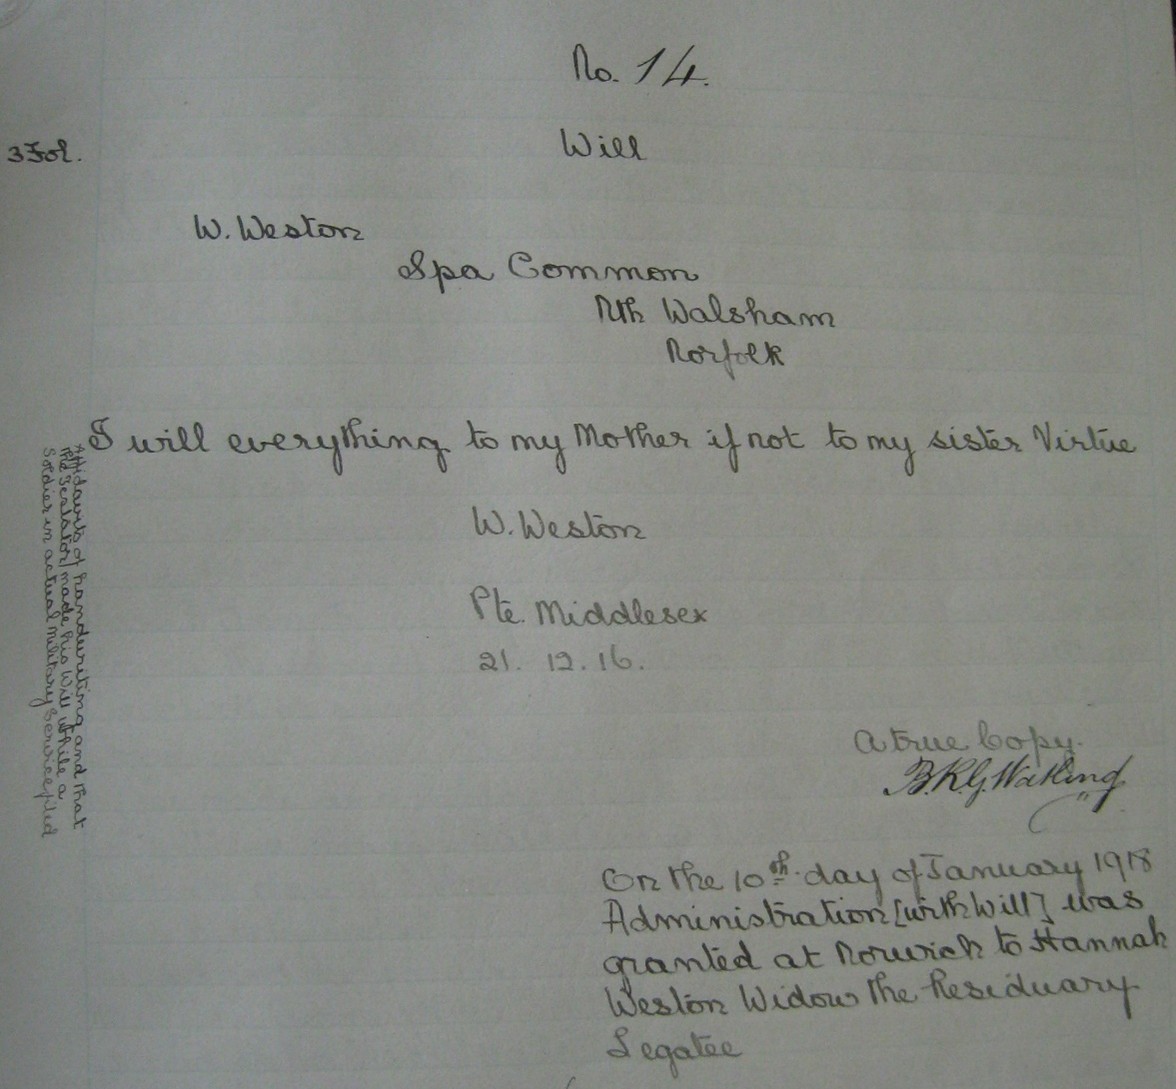 No. 14.
3 Fol.
Will
W. Weston
Spa Common
Nth Walsham
Norfolk
I will everything to my Mother if not to my sister Virtue
W. Weston
Pte. Middlesex
21. 12. 16.
Affidavits of handwriting and that
the Testator made his Will while a
Soldier in actual Military Service filed
A true Copy.
B.R.G. Watling
On the 10th day of January 1918
Administration [with Will] was
granted at Norwich to Hannah
Weston Widow the Residuary
Legatee